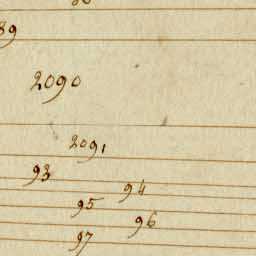 89
2090
2091
93
94
95
96
97